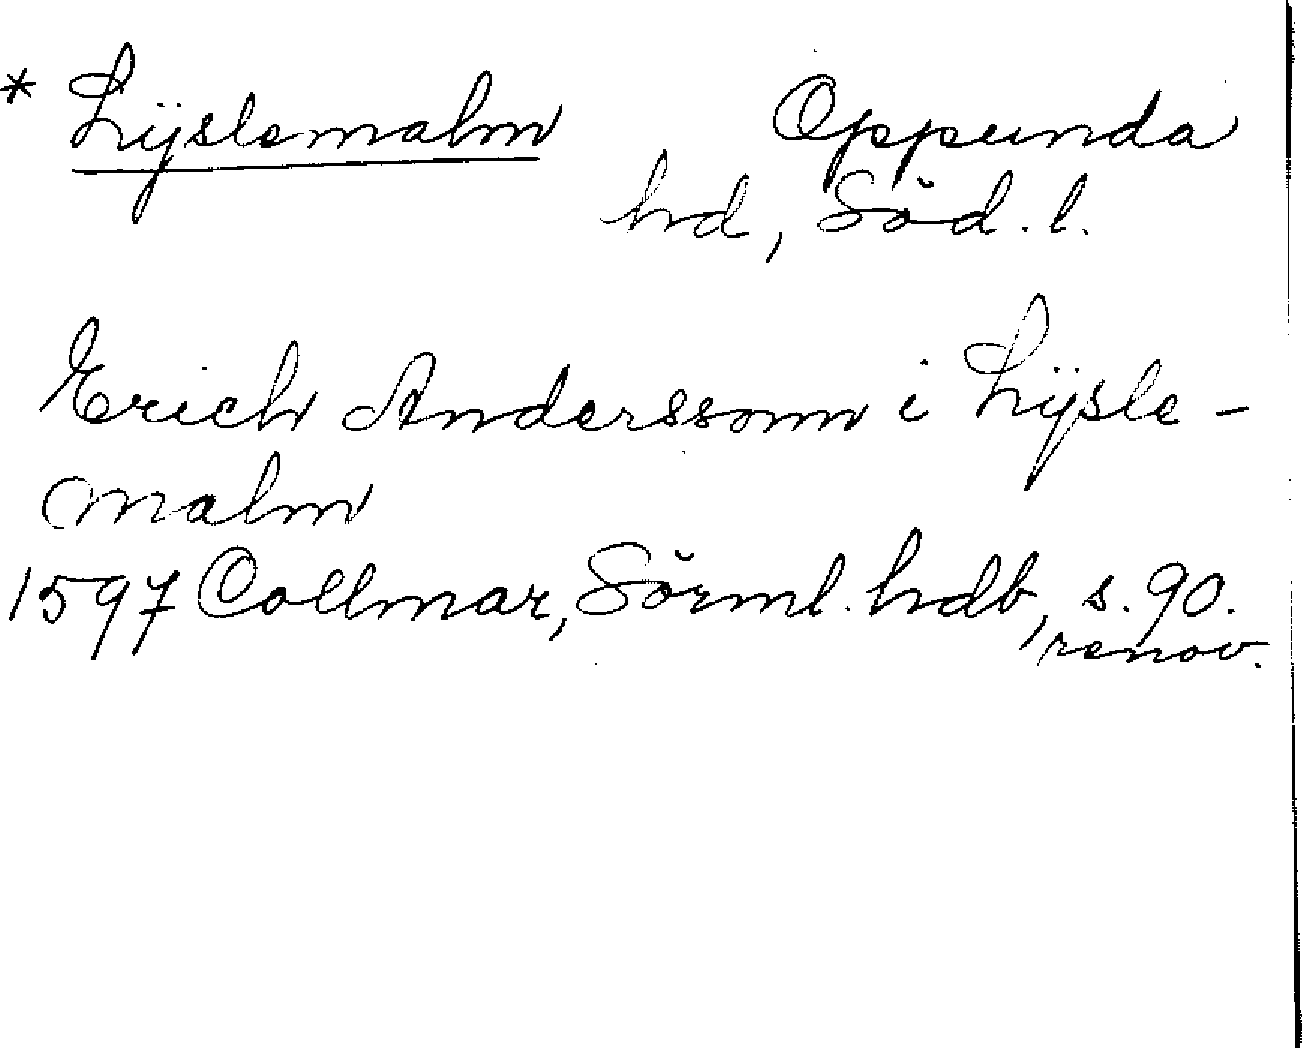 * Lÿslemalm Oppunda
hd, Söd. l.
Erich Anderssonn i Lÿsle-
malm
1597 Collmar, Sörml. hdb, s. 90.
renov.